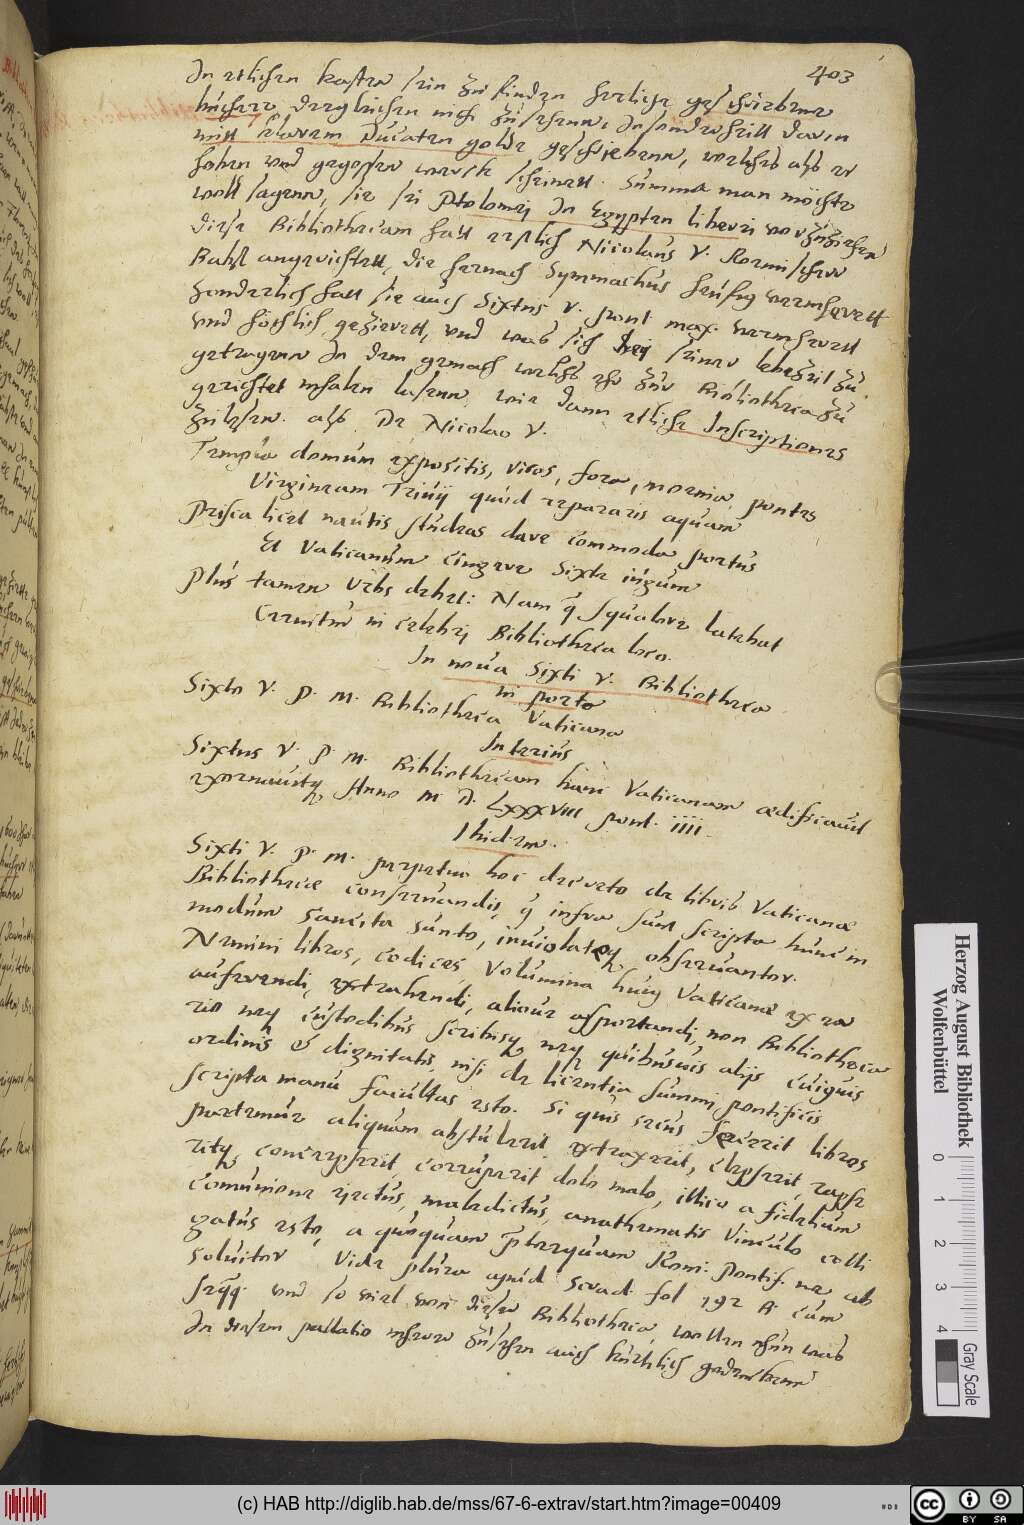 403
In etlichen kasten sein zu finden herliche geschriebene
büchere, dergleichen nich zu sehenn, Insonderheitt darin
mitt klarem Ducaten golde geschriebenn, welchs alß er
haben und gegossen were scheinett. Summa man möchte
woll sagenn, sie sei Ptolomei In Egypten liberei vorzuziehen
diese Bibliothecam hatt erstlich Nicolaus V. Romischer
Babst angerichtett, die hernach Symmachus heufig vermherett
Sonderlich hatt sie auch Sixtus V. pont max. vermherett
und höchlich gezierett, und was sich bei seiner lebezeit zu
getragenn In dem gemach welchs ehr zur Bibliotheca zu
gerichtet mhalen lasenn, wie dann etliche Inscriptiones
zu lesen. alß De Nicolao V.
Templa domum expositis, vicos, fora, moenia, pontes
Virgineam Trivij quod repararis aquam
Prisca licet nautis studeas dare commoda portus
Et Vaticanum cingere Sixte iugum
Plus tamen Urbs debet: Nam q squalore latebat
Cernitur in celebri Bibliotheca loco.
In noua Sixti V. Bibliotheca
in porto
Sixto V. P. M. Bibliotheca Vaticana
Interius
Sixtus V. P. M. Bibliothecam hanc Vaticanam ædificauit
exornauitq Anno M. D. LXXXVIII pont. iiii.
Ibidem.
Sixti V. P. M. perpetuo hoc decreto de libris Vaticanæ
Bibliothecæ conseruandis, q infra sunt scripta hunc in
modum sancita sunto, inuiolateq obseruantor.
Nemini libros, codices, volumina huiq Vaticanæ ex ea
auferendi, extrahendi, alioue asportandi, non Bibliotheca
rio neq custodibus scribisq neq quibusuis alijs cuiuis
ordinis & dignitatis, nisi de licentia summi pontificis
scripta manu facultas esto. Si quis secus fecerit libros
partemue aliquam abstulerit, extraxerit, clepserit, rapse
ritq, concerpserit corruperit dolo malo, illico a fidelium
comunione eiectus, maledictus, anathematis vinculo colli
gatus esto, a quoquam pterquam Rom. Pontif. ne ab
soluitor Vide plura apud Scrad. fol 192 B. cum
seqq. und so viel von dieser Bibliotheca, wollen nhun was
In diesem pallatio mherer zu sehen auch kurtzlich gedenckenn
Herzog August Bibliothek
Wolfenbüttel
0 1 2 3 4
Gray Scale
(c) HAB http://diglib.hab.de/mss/67-6-extrav/start.htm?image=00409
cc BY SA